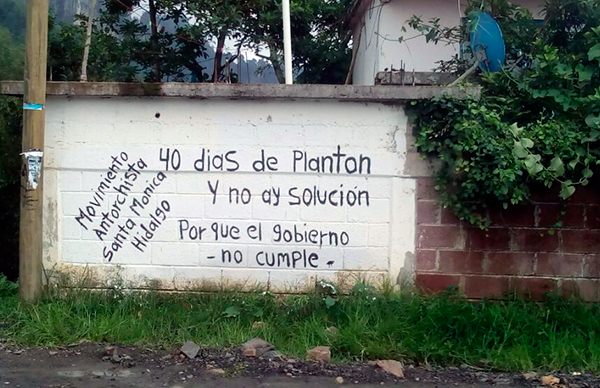 Movimiento
Antorchista
Santa Monica
Hidalgo
40 dias de Planton
Y no ay solución
Por que el gobierno
- no cumple -